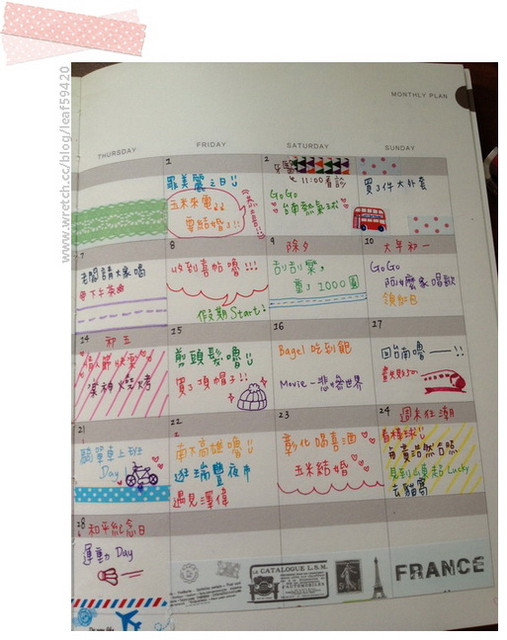 www.wretch.cc/blog/leaf59420
MONTHLY PLAN
THURSDAY
FRIDAY
SATURDAY
SUNDAY
1
罪美麗之日!!
玉米來電
要結婚了!!
2
11:00看診
GoGo
台南熱氣球
買3件大外套
7
老闆請大家喝
下午茶
8
收到喜帖嚕!!!
假期Start!
9
除夕
刮刮樂,
1000圓
10
大年初一
GoGo
阿嬤家唱歌
領紅包
14
初五
情人節快樂
15
剪頭髮嚕!!
買3頂帽子!!
16
Bagel 吃到飽
Movie-悲慘世界
17
回台南嚕——!!
21
騎單車上班
Day
22
南下高雄嚕!!
逛瑞豐夜市
遇見澤偉
23
彰化喝喜酒
玉米結婚
24
週末狂潮
看棒球!!
與黃浩然合照
Lucky
去貓窩
28
和平紀念日
運動 Day
CATALOGUE L.S.M.
FRANCE